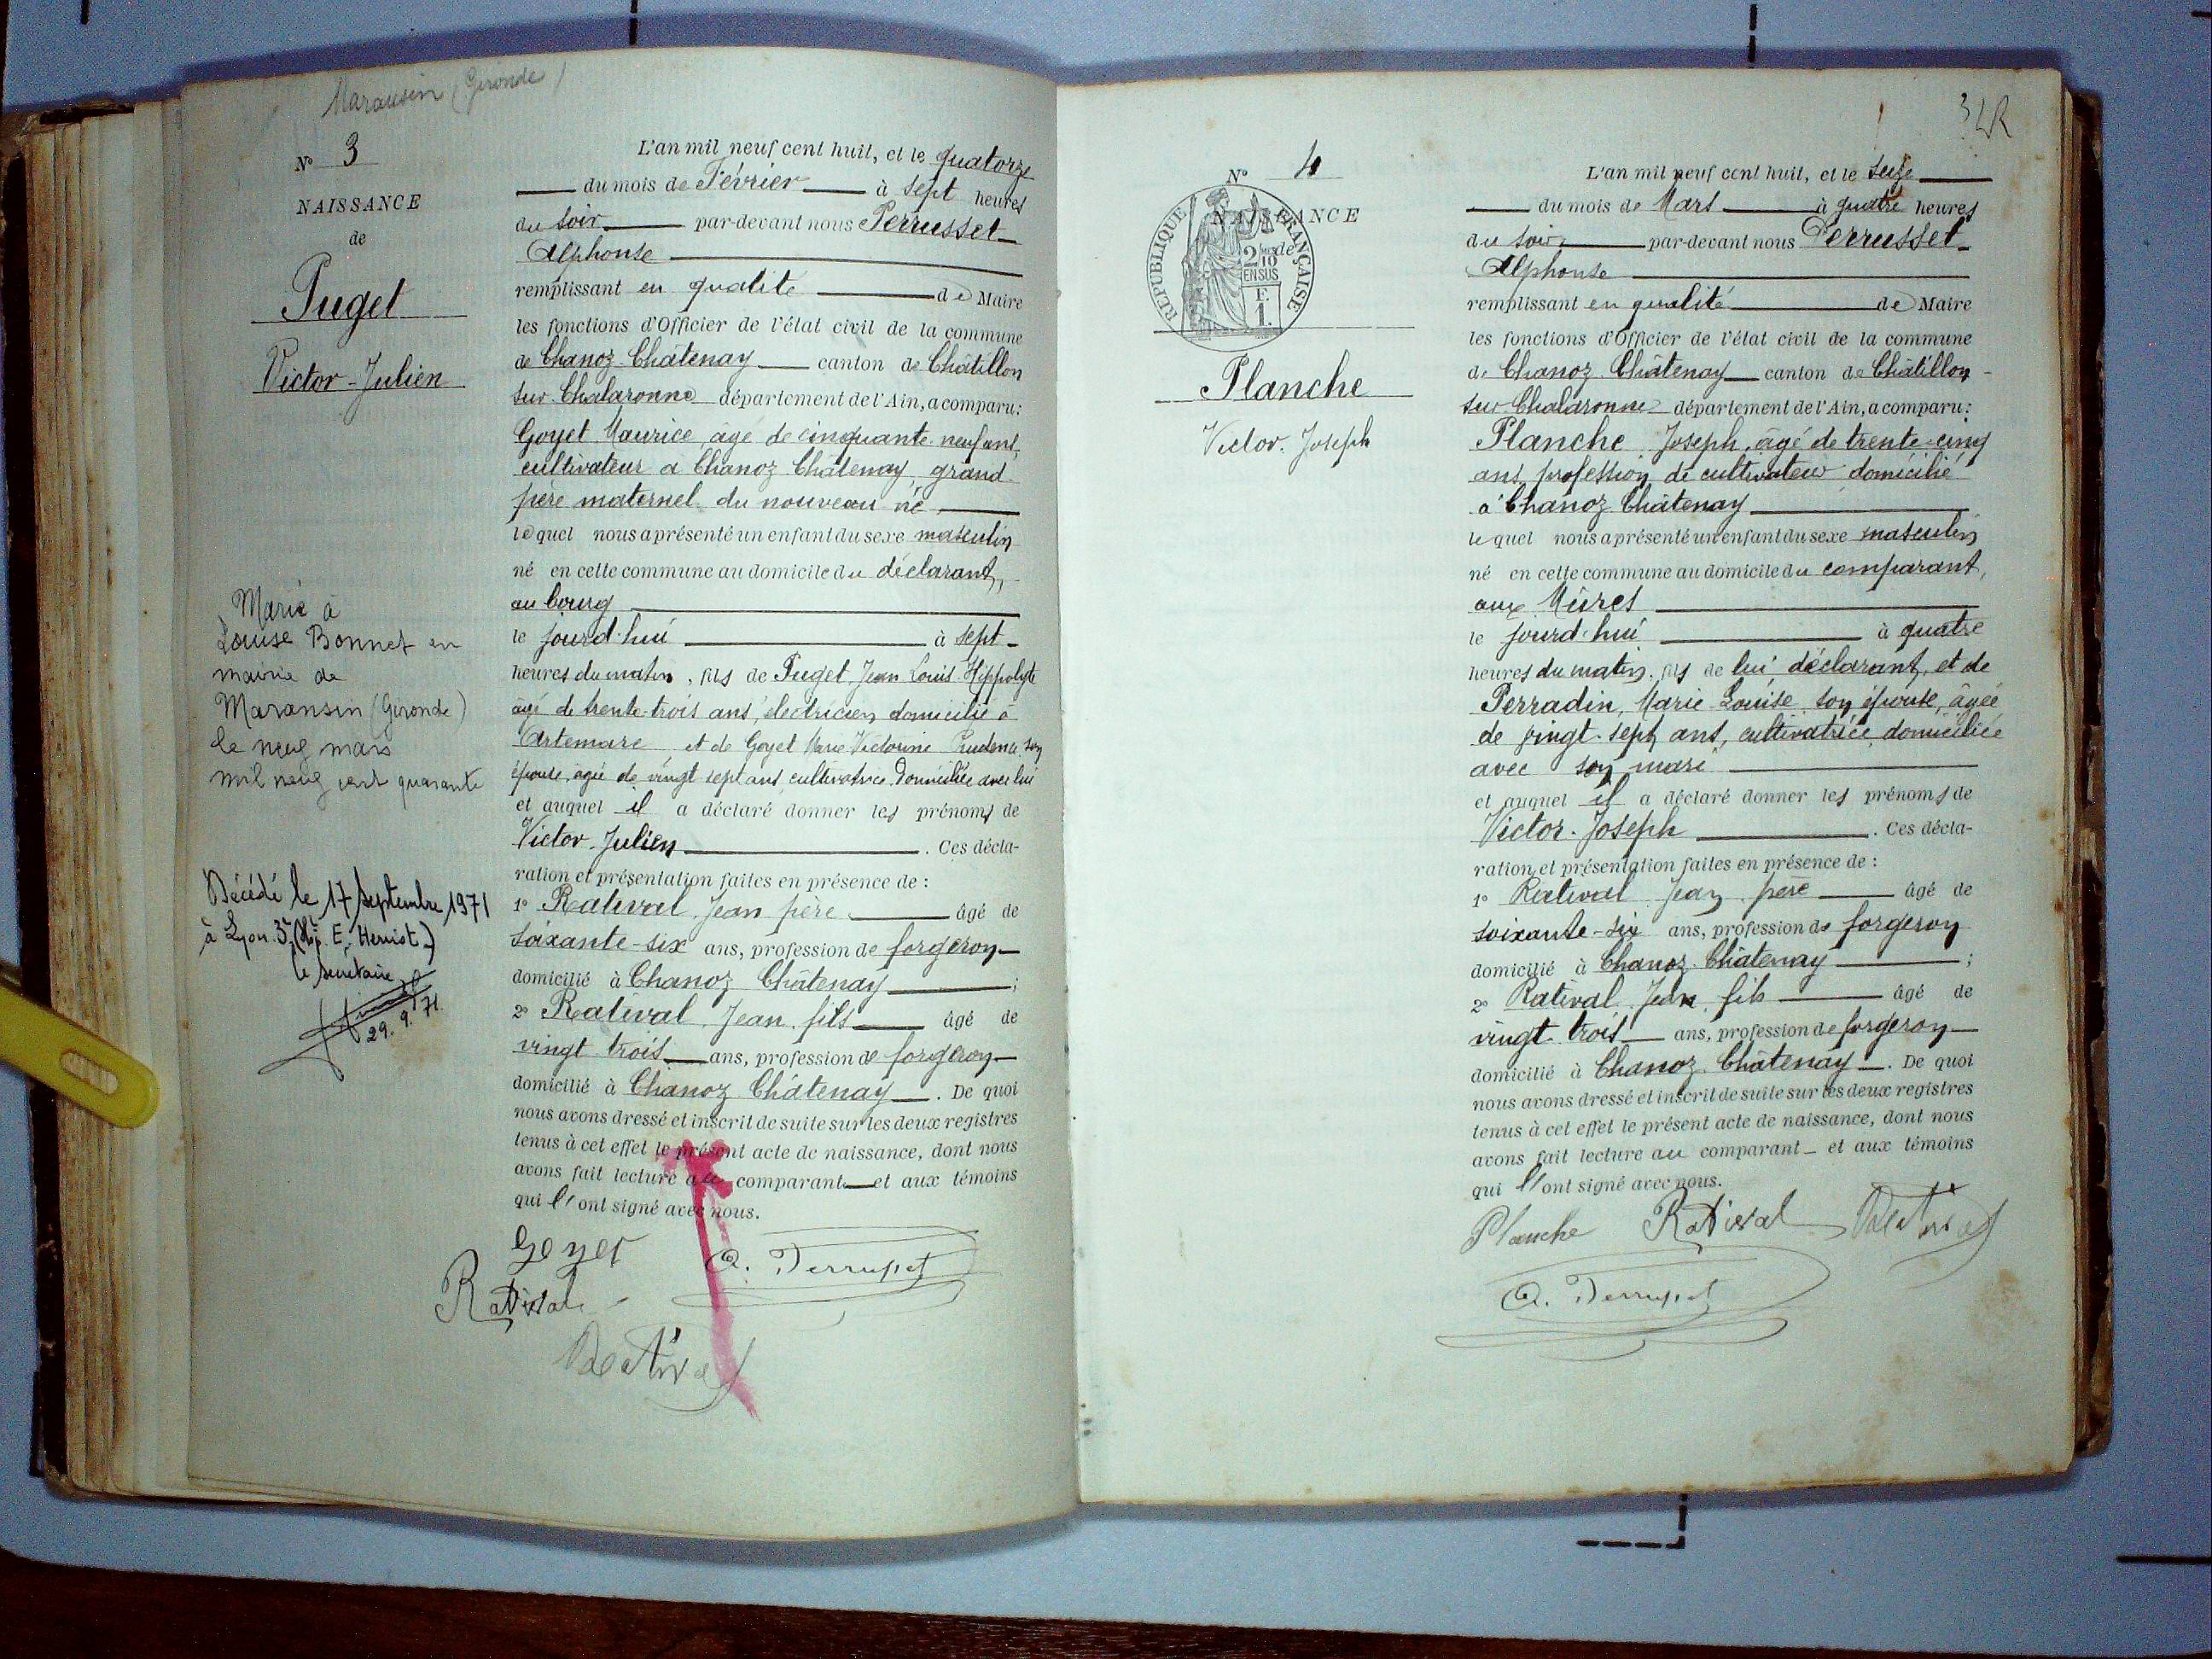 Maransin (Gironde)
N° 3
NAISSANCE
de
Puget
Victor-Julien
Marié à
Louise Bonnet en
mairie de
Maransin (Gironde)
le neuf mars
mil neuf cent quarante
Décédé le 17 Septembre 1971
à Lyon 3e (Hôp. E. Herriot)
le secrétaire
29. 9. 71
L'an mil neuf cent huit, et le quatorze
du mois de Février à sept heures
du soir par-devant nous Perrusset
Alphonse
remplissant en qualité de Maire
les fonctions d'Officier de l'état civil de la commune
de Chanoz-Châtenay canton de Châtillon
sur-Chalaronne département de l'Ain, a comparu:
Goyet Maurice, âgé de cinquante-neuf ans,
cultivateur à Chanoz Châtenay, grand-
père maternel du nouveau né
lequel nous a présenté un enfant du sexe masculin
né en cette commune au domicile du déclarant,
au bourg
le jourd'hui à sept
heures du matin, fils de Puget, Jean Louis Hippolyte
âgé de trente-trois ans, électricien domicilié à
Artemare et de Goyet Marie Victorine Prudence son
épouse, âgée de vingt sept ans, cultivatrice domiciliée avec lui
et auquel il a déclaré donner les prénoms de
Victor-Julien . Ces décla-
ration et présentation faites en présence de :
1° Ratival Jean père âgé de
soixante-six ans, profession de forgeron
domicilié à Chanoz Châtenay ;
2° Ratival, Jean, fils âgé de
vingt-trois ans, profession de forgeron
domicilié à Chanoz Châtenay . De quoi
nous avons dressé et inscrit de suite sur les deux registres
tenus à cet effet le présent acte de naissance, dont nous
avons fait lecture au comparant et aux témoins
qui l'ont signé avec nous.
Goyet A. Perrusset
Ratival
Ratival
34R
N° 4
NAISSANCE
de
REPUBLIQUE FRANÇAISE
2/10
EN SUS
F.
1.
Planche
Victor-Joseph
L'an mil neuf cent huit, et le seize
du mois de Mars à quatre heures
du soir par-devant nous Perrusset
Alphonse
remplissant en qualité de Maire
les fonctions d'Officier de l'état civil de la commune
de Chanoz-Châtenay canton de Châtillon-
sur-Chalaronne département de l'Ain, a comparu:
Planche Joseph, âgé de trente-cinq
ans, profession de cultivateur domicilié
à Chanoz Châtenay
lequel nous a présenté un enfant du sexe masculin
né en cette commune au domicile du comparant,
aux Mûres
le jourd'hui à quatre
heures du matin, fils de lui déclarant, et de
Perradin, Marie Louise son épouse, âgée
de vingt-sept ans, cultivatrice domiciliée
avec son mari
et auquel il a déclaré donner les prénoms de
Victor-Joseph . Ces décla-
ration et présentation faites en présence de :
1° Ratival Jean père âgé de
soixante-six ans, profession de forgeron
domicilié à Chanoz Châtenay ;
2° Ratival, Jean fils âgé de
vingt-trois ans, profession de forgeron
domicilié à Chanoz-Châtenay . De quoi
nous avons dressé et inscrit de suite sur les deux registres
tenus à cet effet le présent acte de naissance, dont nous
avons fait lecture au comparant et aux témoins
qui l'ont signé avec nous.
Planche Ratival Ratival
A. Perrusset